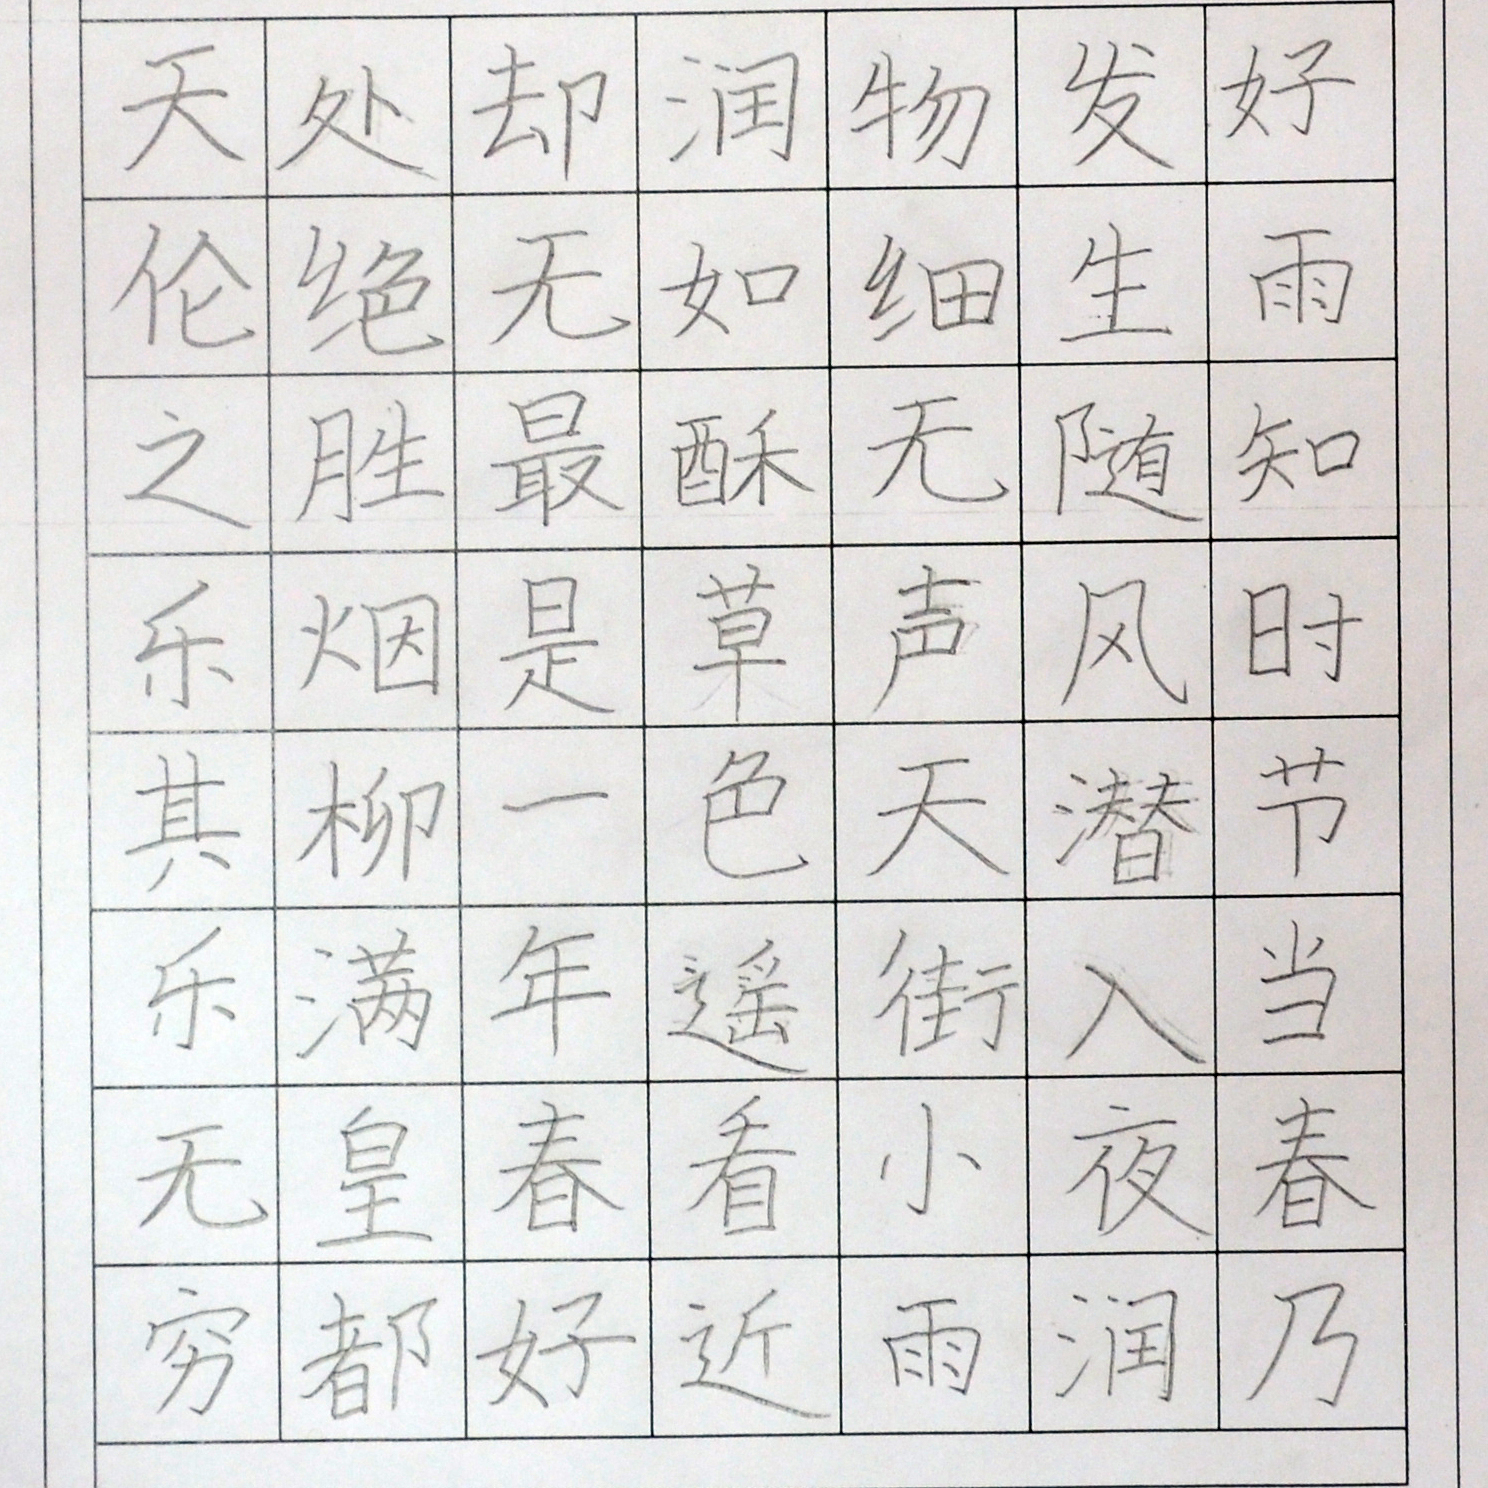 好雨知时节当春乃
发生随风潜入夜润
物细无声天街小雨
润如酥草色遥看近
却无最是一年春好
处绝胜烟柳满皇都
天伦之乐其乐无穷